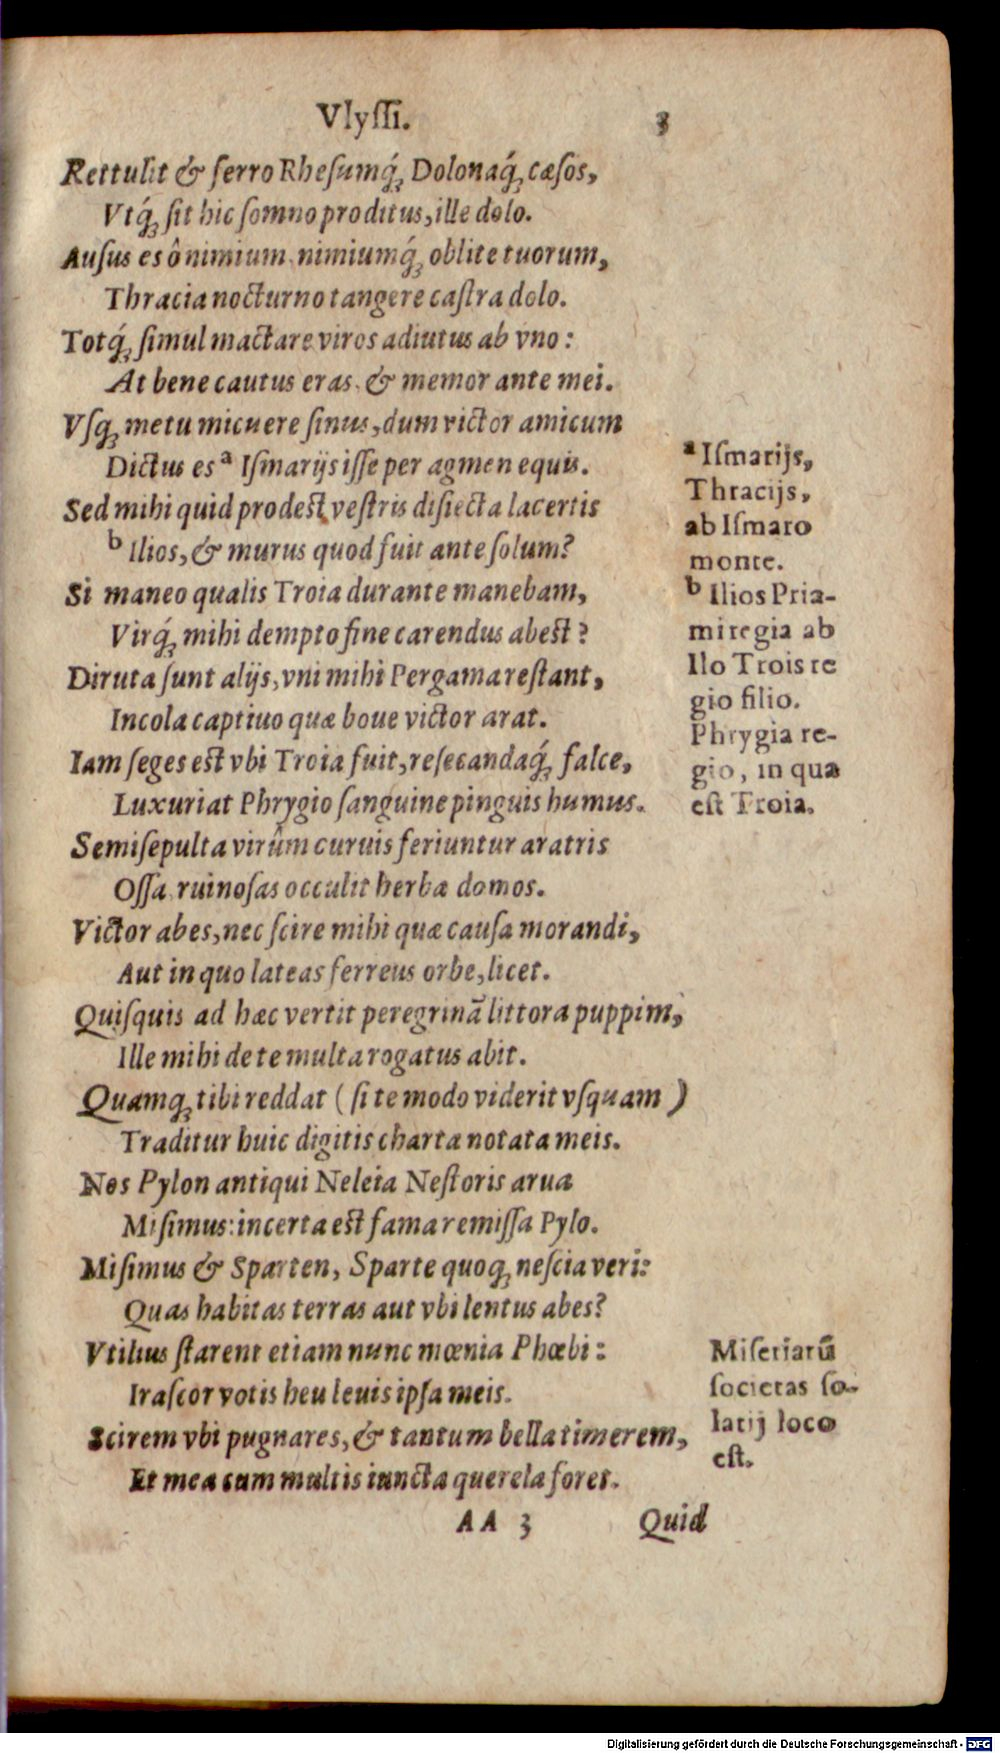 Vlyſſi. 3
Rettulit & ferro Rheſumq́; Dolonaq́; cæſos,
Vtq́; ſit hic ſomno proditus, ille dolo.
Auſus es ô nimium nimiumq́; oblite tuorum,
Thracia nocturno tangere caſtra dolo.
Totq́; ſimul mactare viros adiutus ab vno:
At bene cautus eras & memor ante mei.
Vſq; metu micuere ſinus, dum victor amicum
Dictus es ª Iſmarijs iſſe per agmen equis.
Sed mihi quid prodest veſtris diſiecta lacertis
ᵇ Ilios, & murus quod fuit ante ſolum?
Si maneo qualis Troia durante manebam,
Virq́; mihi dempto fine carendus abest?
Diruta ſunt alijs, vni mihi Pergama reſtant,
Incola captiuo quæ boue victor arat.
Iam ſeges est vbi Troia fuit, reſecandaq́; falce,
Luxuriat Phrygio ſanguine pinguis humus.
Semiſepulta virûm curuis feriuntur aratris
Oſſa ruinoſas occulit herba domos.
Victor abes, nec ſcire mihi quæ cauſa morandi,
Aut in quo lateas ferreus orbe, licet.
Quiſquis ad hæc vertit peregrinã littora puppim,
Ille mihi de te multa rogatus abit.
Quamq; tibi reddat (ſi te modo viderit vſquam)
Traditur huic digitis charta notata meis.
Nos Pylon antiqui Neleia Neſtoris arua
Miſimus: incerta est fama remiſſa Pylo.
Miſimus & Sparten, Sparte quoq; neſcia veri:
Quas habitas terras aut vbi lentus abes?
Vtilius ſtarent etiam nunc mœnia Phœbi:
Iraſcor votis heu leuis ipſa meis.
Scirem vbi pugnares, & tantum bella timerem,
Et mea cum multis iuncta querela foret.
AA 3 Quid
ª Iſmarijs,
Thracijs,
ab Iſmaro
monte.
ᵇ Ilios Pria-
mi regia ab
Ilo Trois re
gio filio.
Phrygia re-
gio, in qua
eſt Troia.
Miſeriarũ
ſocietas ſo-
latij loco
eſt.
Digitalisierung gefördert durch die Deutsche Forschungsgemeinschaft - DFG